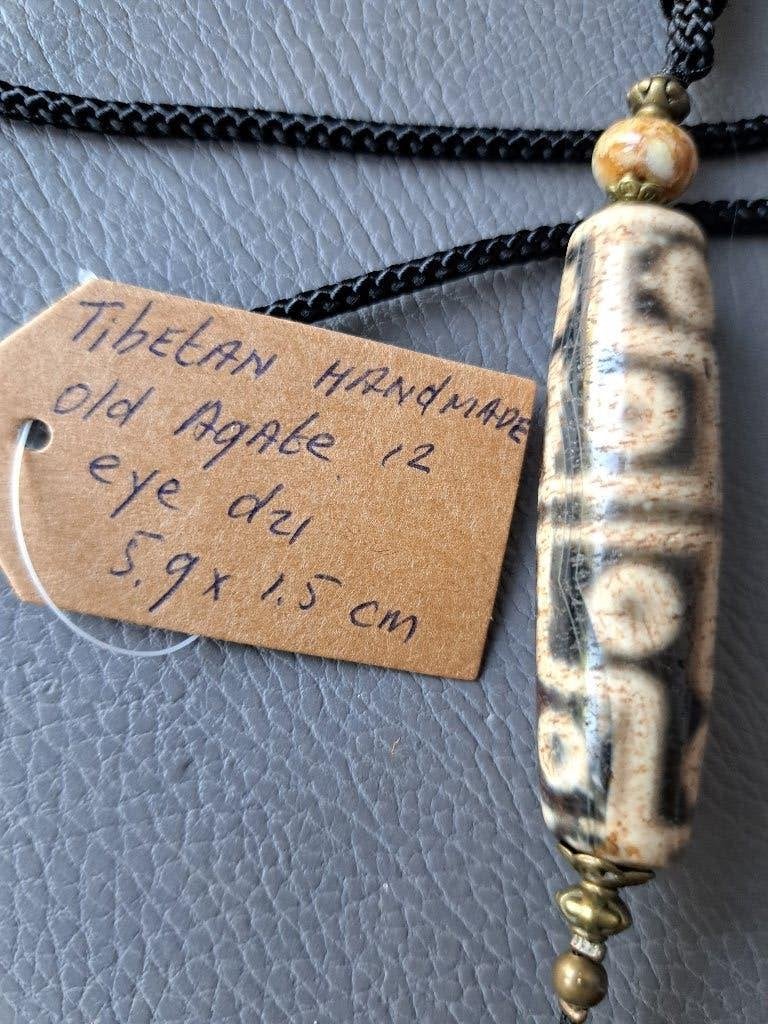 TibEtAN HANdMADE
Old AgAte 12
eye dzi
5.9 x 1.5 cm